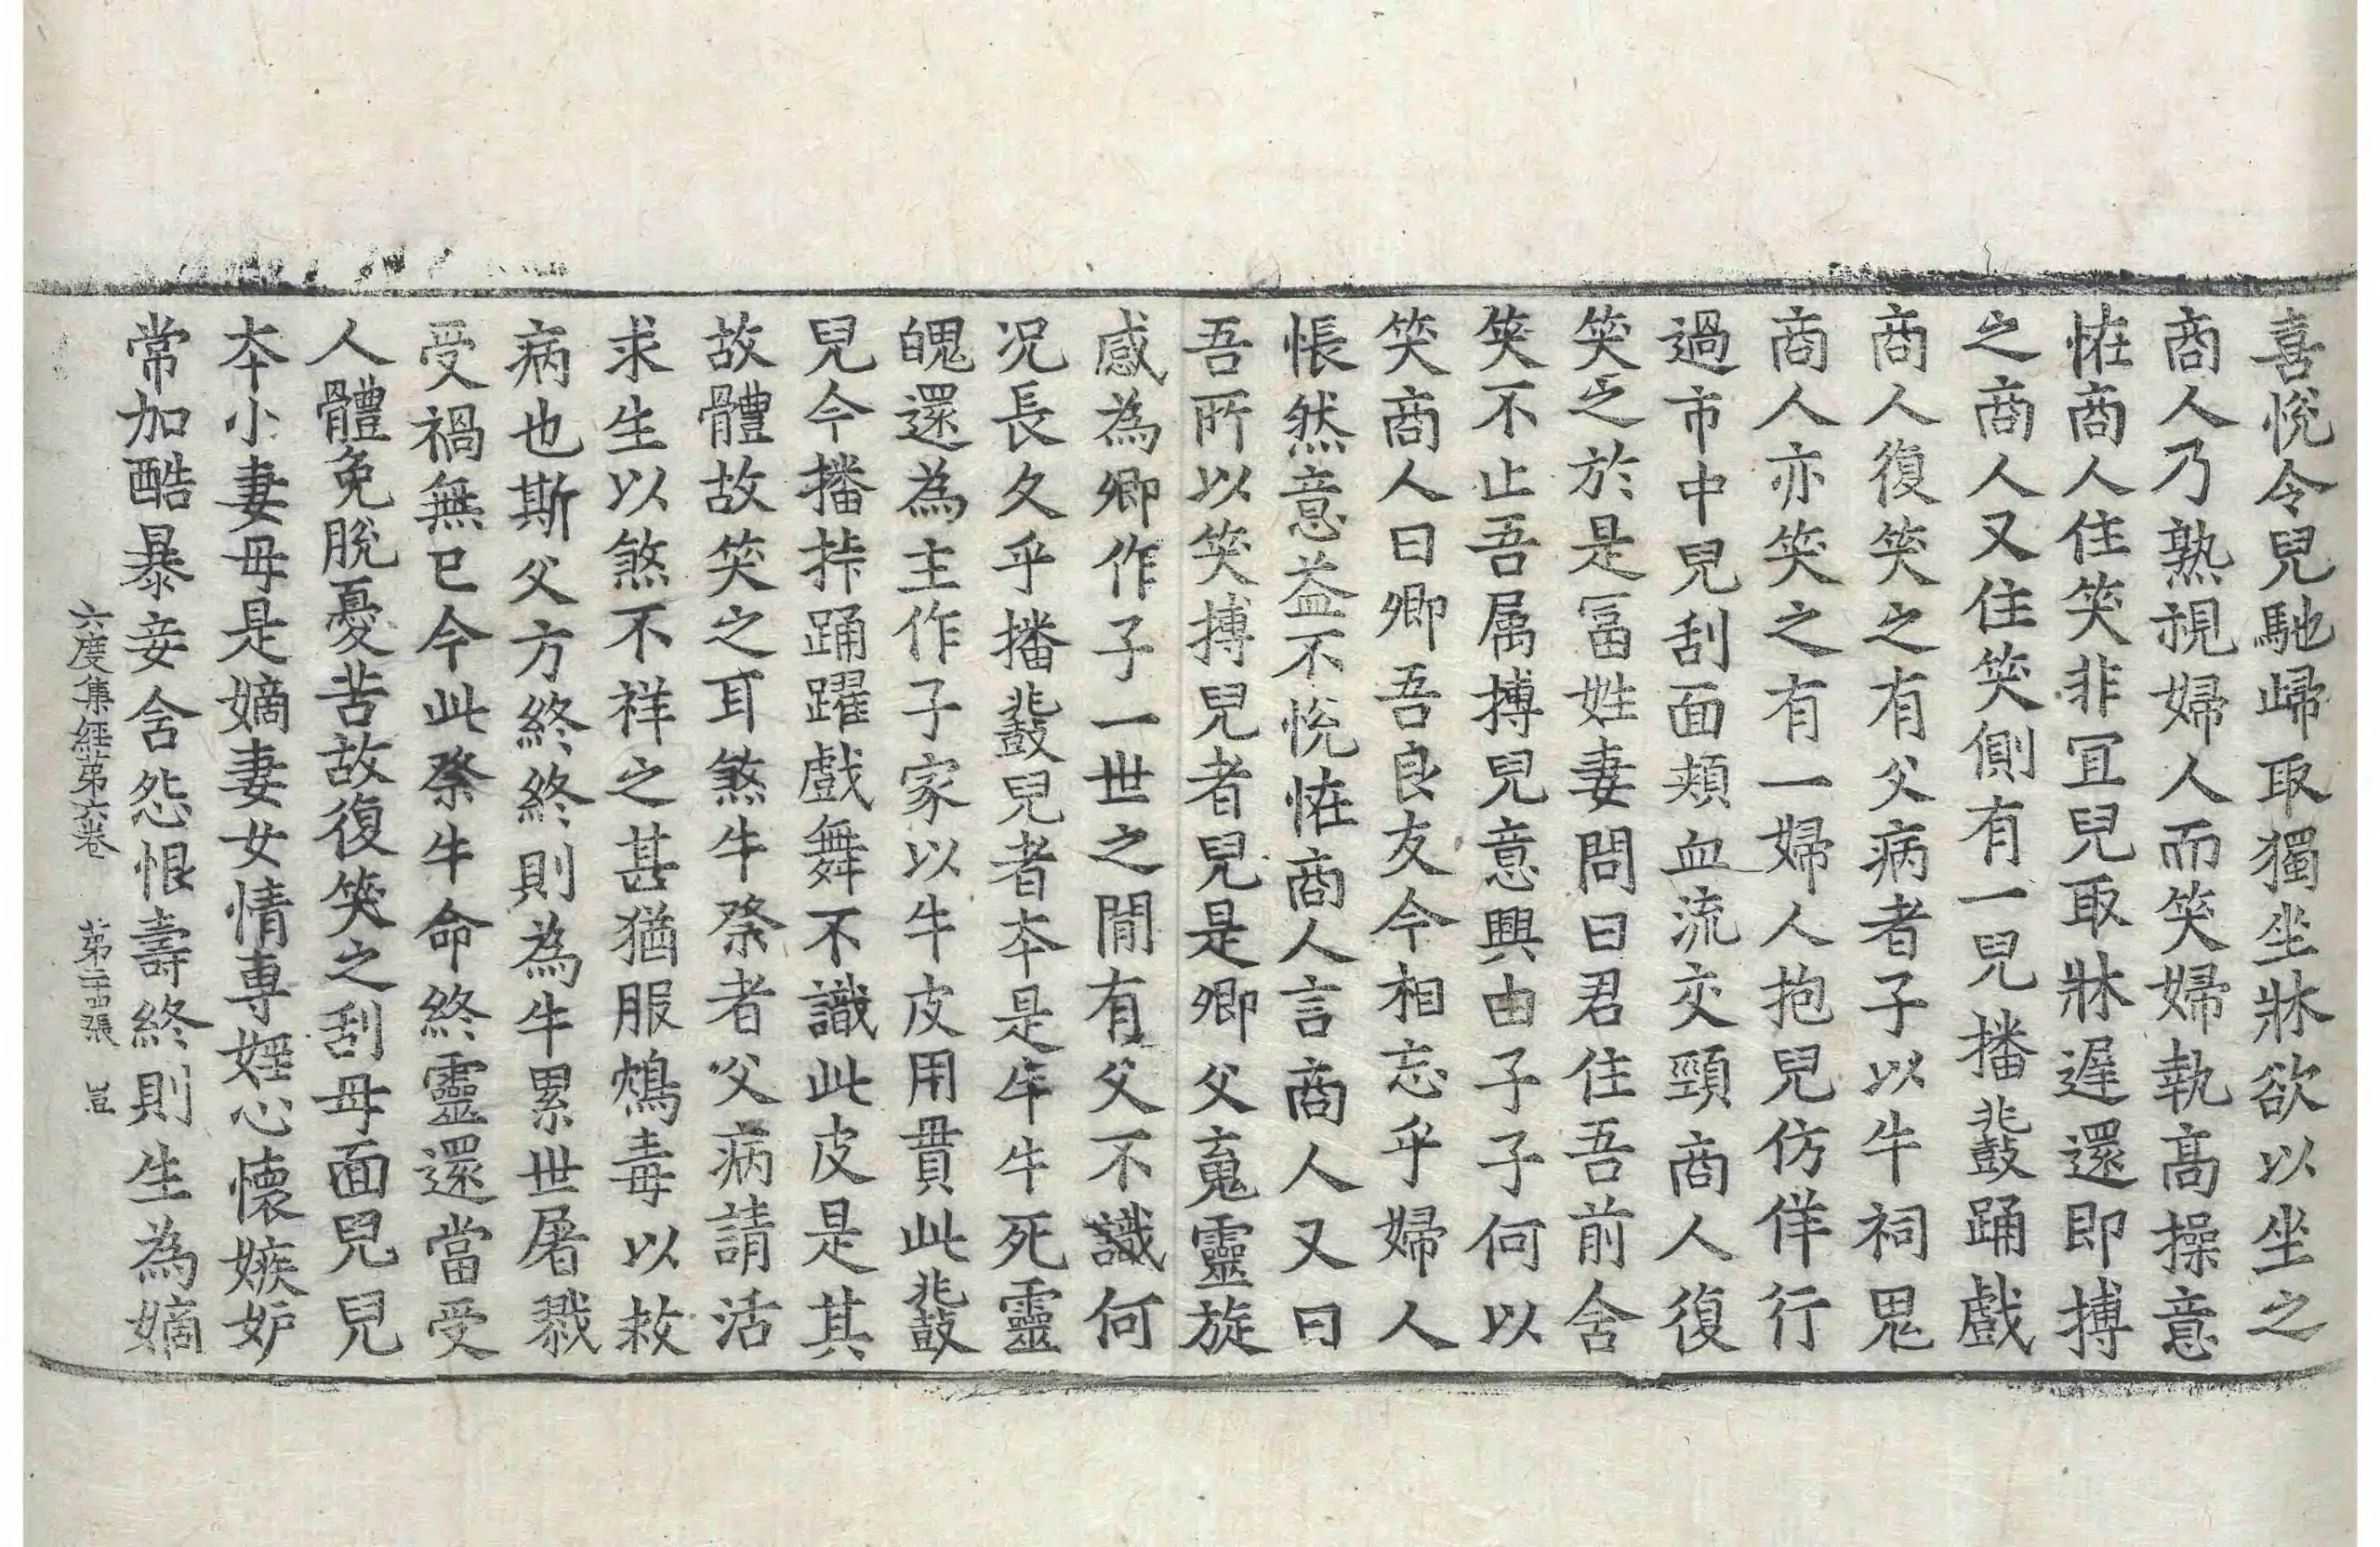 喜悅令兒馳歸取獨坐牀欲以坐之
商人乃熟視婦人而笑婦執高操意
恠商人住笑非冝兒取牀遲還即搏
之商人又住笑側有一兒播鼗踊戲
商人復笑之有父病者子以牛祠鬼
商人亦笑之有一婦人抱兒仿佯行
過市中兒刮面頰血流交頸商人復
笑之於是冨姓妻問曰君住吾前含
笑不止吾属搏兒意興由子子何以
笑商人曰卿吾良友今相忘乎婦人
悵然意益不悅恠商人言商人又曰
吾所以笑搏兒者兒是卿父䰟靈旋
感為卿作子一世之閒有父不識何
况長久乎播鼗兒者夲是牛牛死靈
魄還為主作子家以牛皮用貫此鼗
兒今播㧊踊躍戲舞不識此皮是其
故體故笑之耳煞牛祭者父病請活
求生以煞不祥之甚猶服鴆毒以救
病也斯父方終終則為牛累世屠戮
受禍無已今此祭牛命終靈還當受
人體免脫憂苦故復笑之刮母面兒兒
夲小妻母是嫡妻女情專婬心懷嫉妒
常加酷暴妾含怨恨壽終則生為嫡
六度集經第六卷　第二十四張　豈